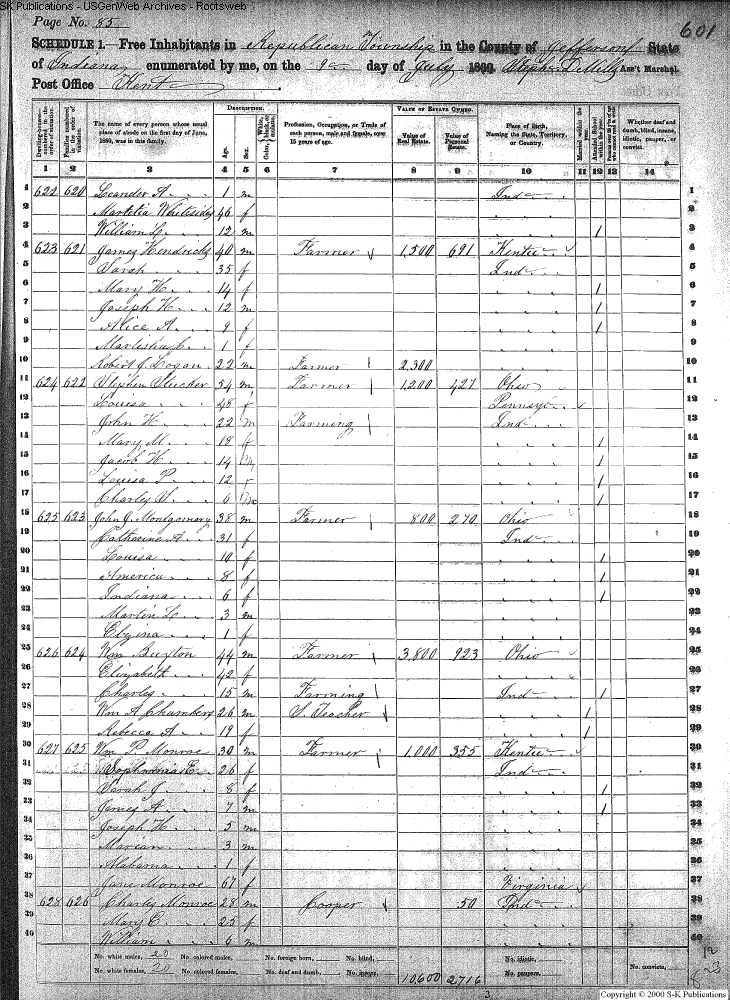 SK Publications - USGenWeb Archives - Rootsweb
Page No. 85
601
SCHEDULE 1.—Free Inhabitants in Republican Township in the County of Jefferson State
of Indiana enumerated by me, on the 9th day of July 1860. Ass't Marshal.
Post Office Kent
Dwelling-houses—numbered in the order of visitation.
Families numbered in the order of visitation.
The name of every person whose usual place of abode on the first day of June, 1860, was in this family.
DESCRIPTION.
Age.
Sex.
Color, White, black, or mulatto.
Profession, Occupation, or Trade of each person, male and female, over 15 years of age.
VALUE OF ESTATE OWNED.
Value of Real Estate.
Value of Personal Estate.
Place of Birth, Naming the State, Territory, or Country.
Married within the year.
Whether deaf and dumb, blind, insane, idiotic, pauper, or convict.
1 2 3 4 5 6 7 8 9 10 11 12 13 14
1 622 620 Leander A. 1 m Ind 1
2 Martetia Whitesides 46 f " 2
3 William L. 12 m " / 3
4 623 621 James Hendricks 40 m Farmer 1,500 691 Kentu 4
5 Sarah 35 f Ind 5
6 Mary H. 14 f " / 6
7 Joseph H. 12 m " / 7
8 Alice A. 9 f " / 8
9 1 f " 9
10 Robert J. Logan 22 m Farmer 2,300 " 10
11 624 622 Stephen Slucker 54 m Farmer 1,200 427 Ohio 11
12 Louisa 48 f Pennsyl 12
13 John H. 22 m Farming Ind 13
14 Mary M. 18 f " / 14
15 Jacob H. 14 m " / 15
16 Louisa P. 12 f " / 16
17 Charles S. 6 m " / 17
18 625 623 John J. Montgomery 38 m Farmer 800 270 Ohio 18
19 Catherine A. 31 f Ind 19
20 Louisa 10 f " / 20
21 America 8 f " / 21
22 Indiana 6 f " / 22
23 Martin L. 3 m " 23
24 Elzina 1 f " 24
25 626 624 Wm Buxton 44 m Farmer 3,800 923 Ohio 25
26 Elizabeth 42 f " 26
27 Charles 15 m Farming Ind / 27
28 Wm A Chambers 26 m S. Teacher " / 28
29 Rebecca A. 19 f " / 29
30 627 625 Wm P. Monroe 30 m Farmer 1,000 355 Kentu 30
31 Sophronia E. 26 f Ind 31
32 Sarah J. 8 f " / 32
33 James A. 7 m " / 33
34 Joseph H. 5 m " 34
35 Marcan 3 m " 35
36 Alabama 1 f " 36
37 Jane Monroe 67 f Virginia 37
38 628 626 Charles Monroe 28 m Cooper 50 Ind 38
39 Mary C. 25 f " 39
40 William 6 m " 40
No. white males, 20 No. colored males, No. foreign born, No. blind, No. idiotic, No. convicts,
No. white females, 20 No. colored females, No. deaf and dumb, No. insane, 10600 2716 No. paupers,
3
Copyright © 2000 S-K Publications